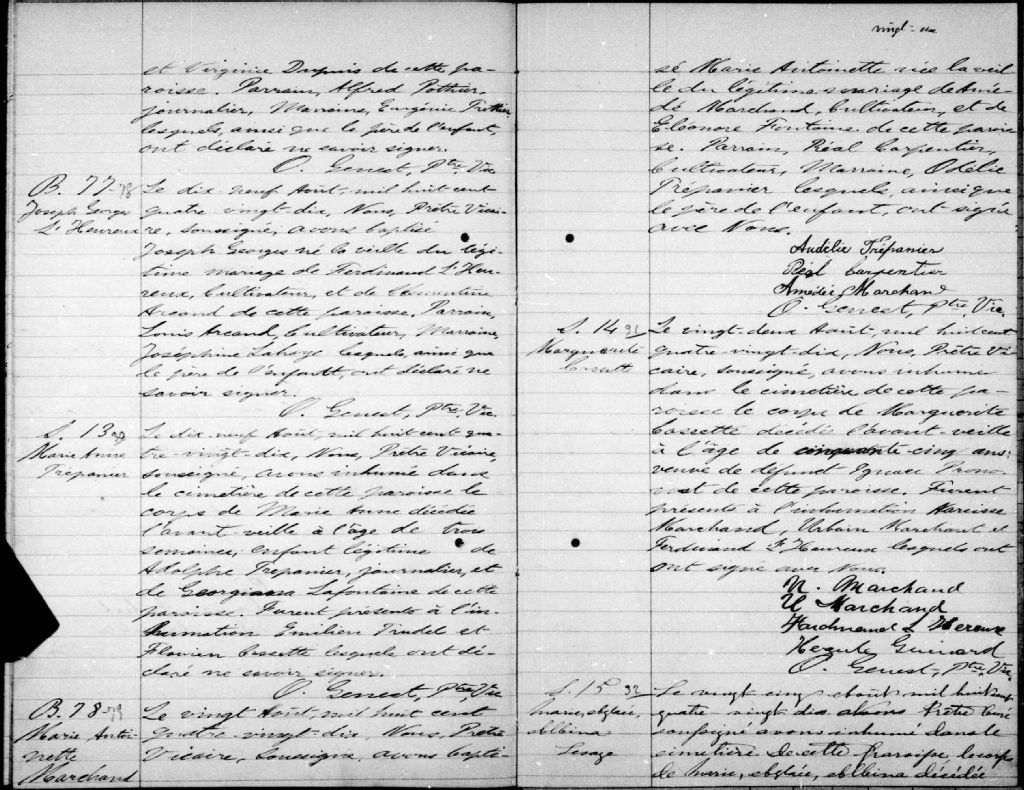 et Virginie Dupuis de cette pa-
roisse. Parrain, Alfred Pothier,
journalier, Marraine, Eugénie Trottier
lesquels, ainsi que le père de l'enfant,
ont déclaré ne savoir signer.
O. Genest, Ptre Vic.
B. 77 78
Joseph Georges
L'Heureux
Le dix neuf Août, mil huit cent
quatre vingt-dix, Nous, Prêtre Vicai-
re, soussigné, avons baptisé
Joseph Georges né la veille du légi-
time mariage de Ferdinand L'Heu-
reux, Cultivateur, et de
Arcand de cette paroisse. Parrain,
Louis Arcand, Cultivateur, Marraine,
Joséphine Lahaye lesquels, ainsi que
le père de l'enfant, ont déclaré ne
savoir signer.
O. Genest, Ptre Vic.
S. 13
Marie Anne
Trépanier
Le dix-neuf Août, mil huit cent qua-
tre-vingt-dix, Nous, Prêtre Vicaire,
soussigné, avons inhumé dans
le cimetière de cette paroisse le
corps de Marie Anne décédée
l'avant veille à l'âge de trois
semaines, enfant légitime de
Adolphe Trépanier, journalier, et
de Georgianna Lafontaine de cette
paroisse. Furent présents à l'in-
humation Emilien Trudel et
Flavien Cossette lesquels ont dé-
claré ne savoir signer.
O. Genest, Ptre Vic
B. 78 79
Marie Antoi-
nette
Marchand
Le vingt Août, mil huit cent
quatre-vingt-dix, Nous, Prêtre
Vicaire, soussigné, avons bapti-
vingt-un
sé Marie Antoinette née la veil-
le du légitime mariage de Amé-
dé Marchand, Cultivateur, et de
Eléonore Fontaine de cette parois-
se. Parrain, Réal Carpentier,
Cultivateur, Marraine, Odélie
Trépanier lesquels, ainsi que
le père de l'enfant, ont signé
avec Nous.
Audélie Trépanier
Réal Carpentier
Amédée Marchand
O. Genest, Ptre Vic.
S. 14 31
Marguerite
Cossette
Le vingt-deux Août, mil huit cent
quatre-vingt-dix, Nous, Prêtre Vi-
caire, soussigné, avons inhumé
dans le cimetière de cette pa-
roisse le corps de Marguerite
Cossette décédé l'avant-veille
à l'âge de cinquante cinq ans
veuve de défunt Ignace Prono-
vost de cette paroisse. Furent
présents à l'inhumation Narcisse
Marchand, Urbain Marchand et
Ferdinand L'Heureux lesquels ont
ont signé avec Nous.
N. Marchand
U Marchand
Fardinand L Hereux
O. Genest, Ptre Vic,
S. 15 32
Marie,
Lesage
Le vingt cinq août mil huit cent
quatre vingt dix Prêtre Curé
soussigné avons inhumé dans le
cimetière de cette paroisse, le corps
de Marie, décédée